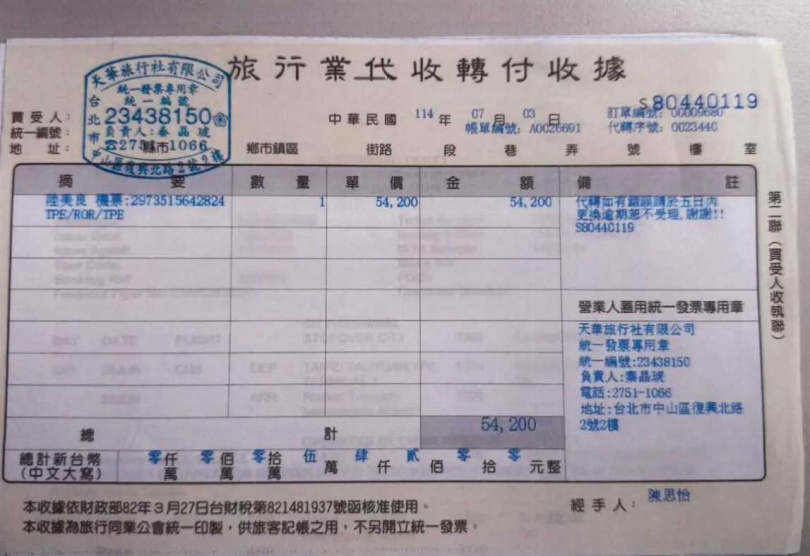 旅行業代收轉付收據
天華旅行社有限公司
統一發票專用章
統一編號
23438150
負責人:秦晶琥
☎2751-1066
台北市中山區復興北路2號2樓
S80440119
買受人:
中華民國 114 年 07 月 03 日
訂單編號: 00009680
統一編號:
帳單編號: A0026691
代轉序號: 0023440
地址: 縣市 鄉市鎮區 街路 段 巷 弄 號 樓 室
摘要 數量 單價 金額 備註
陸美良 機票:2973515642824 1 54,200 54,200
TPE/ROR/TPE
代轉如有錯誤請於五日內
更換逾期恕不受理,謝謝!!
S80440119
營業人蓋用統一發票專用章
天華旅行社有限公司
統一發票專用章
統一編號:23438150
負責人:秦晶琥
電話:2751-1066
地址:台北市中山區復興北路
2號2樓
總計 54,200
總計新台幣 零仟萬 零佰萬 零拾萬 伍萬 肆仟 貳佰 零拾 零元整
(中文大寫)
第二聯(買受人收執聯)
本收據依財政部82年3月27日台財稅第821481937號函核准使用。
本收據為旅行同業公會統一印製,供旅客記帳之用,不另開立統一發票。
經手人: 陳思怡